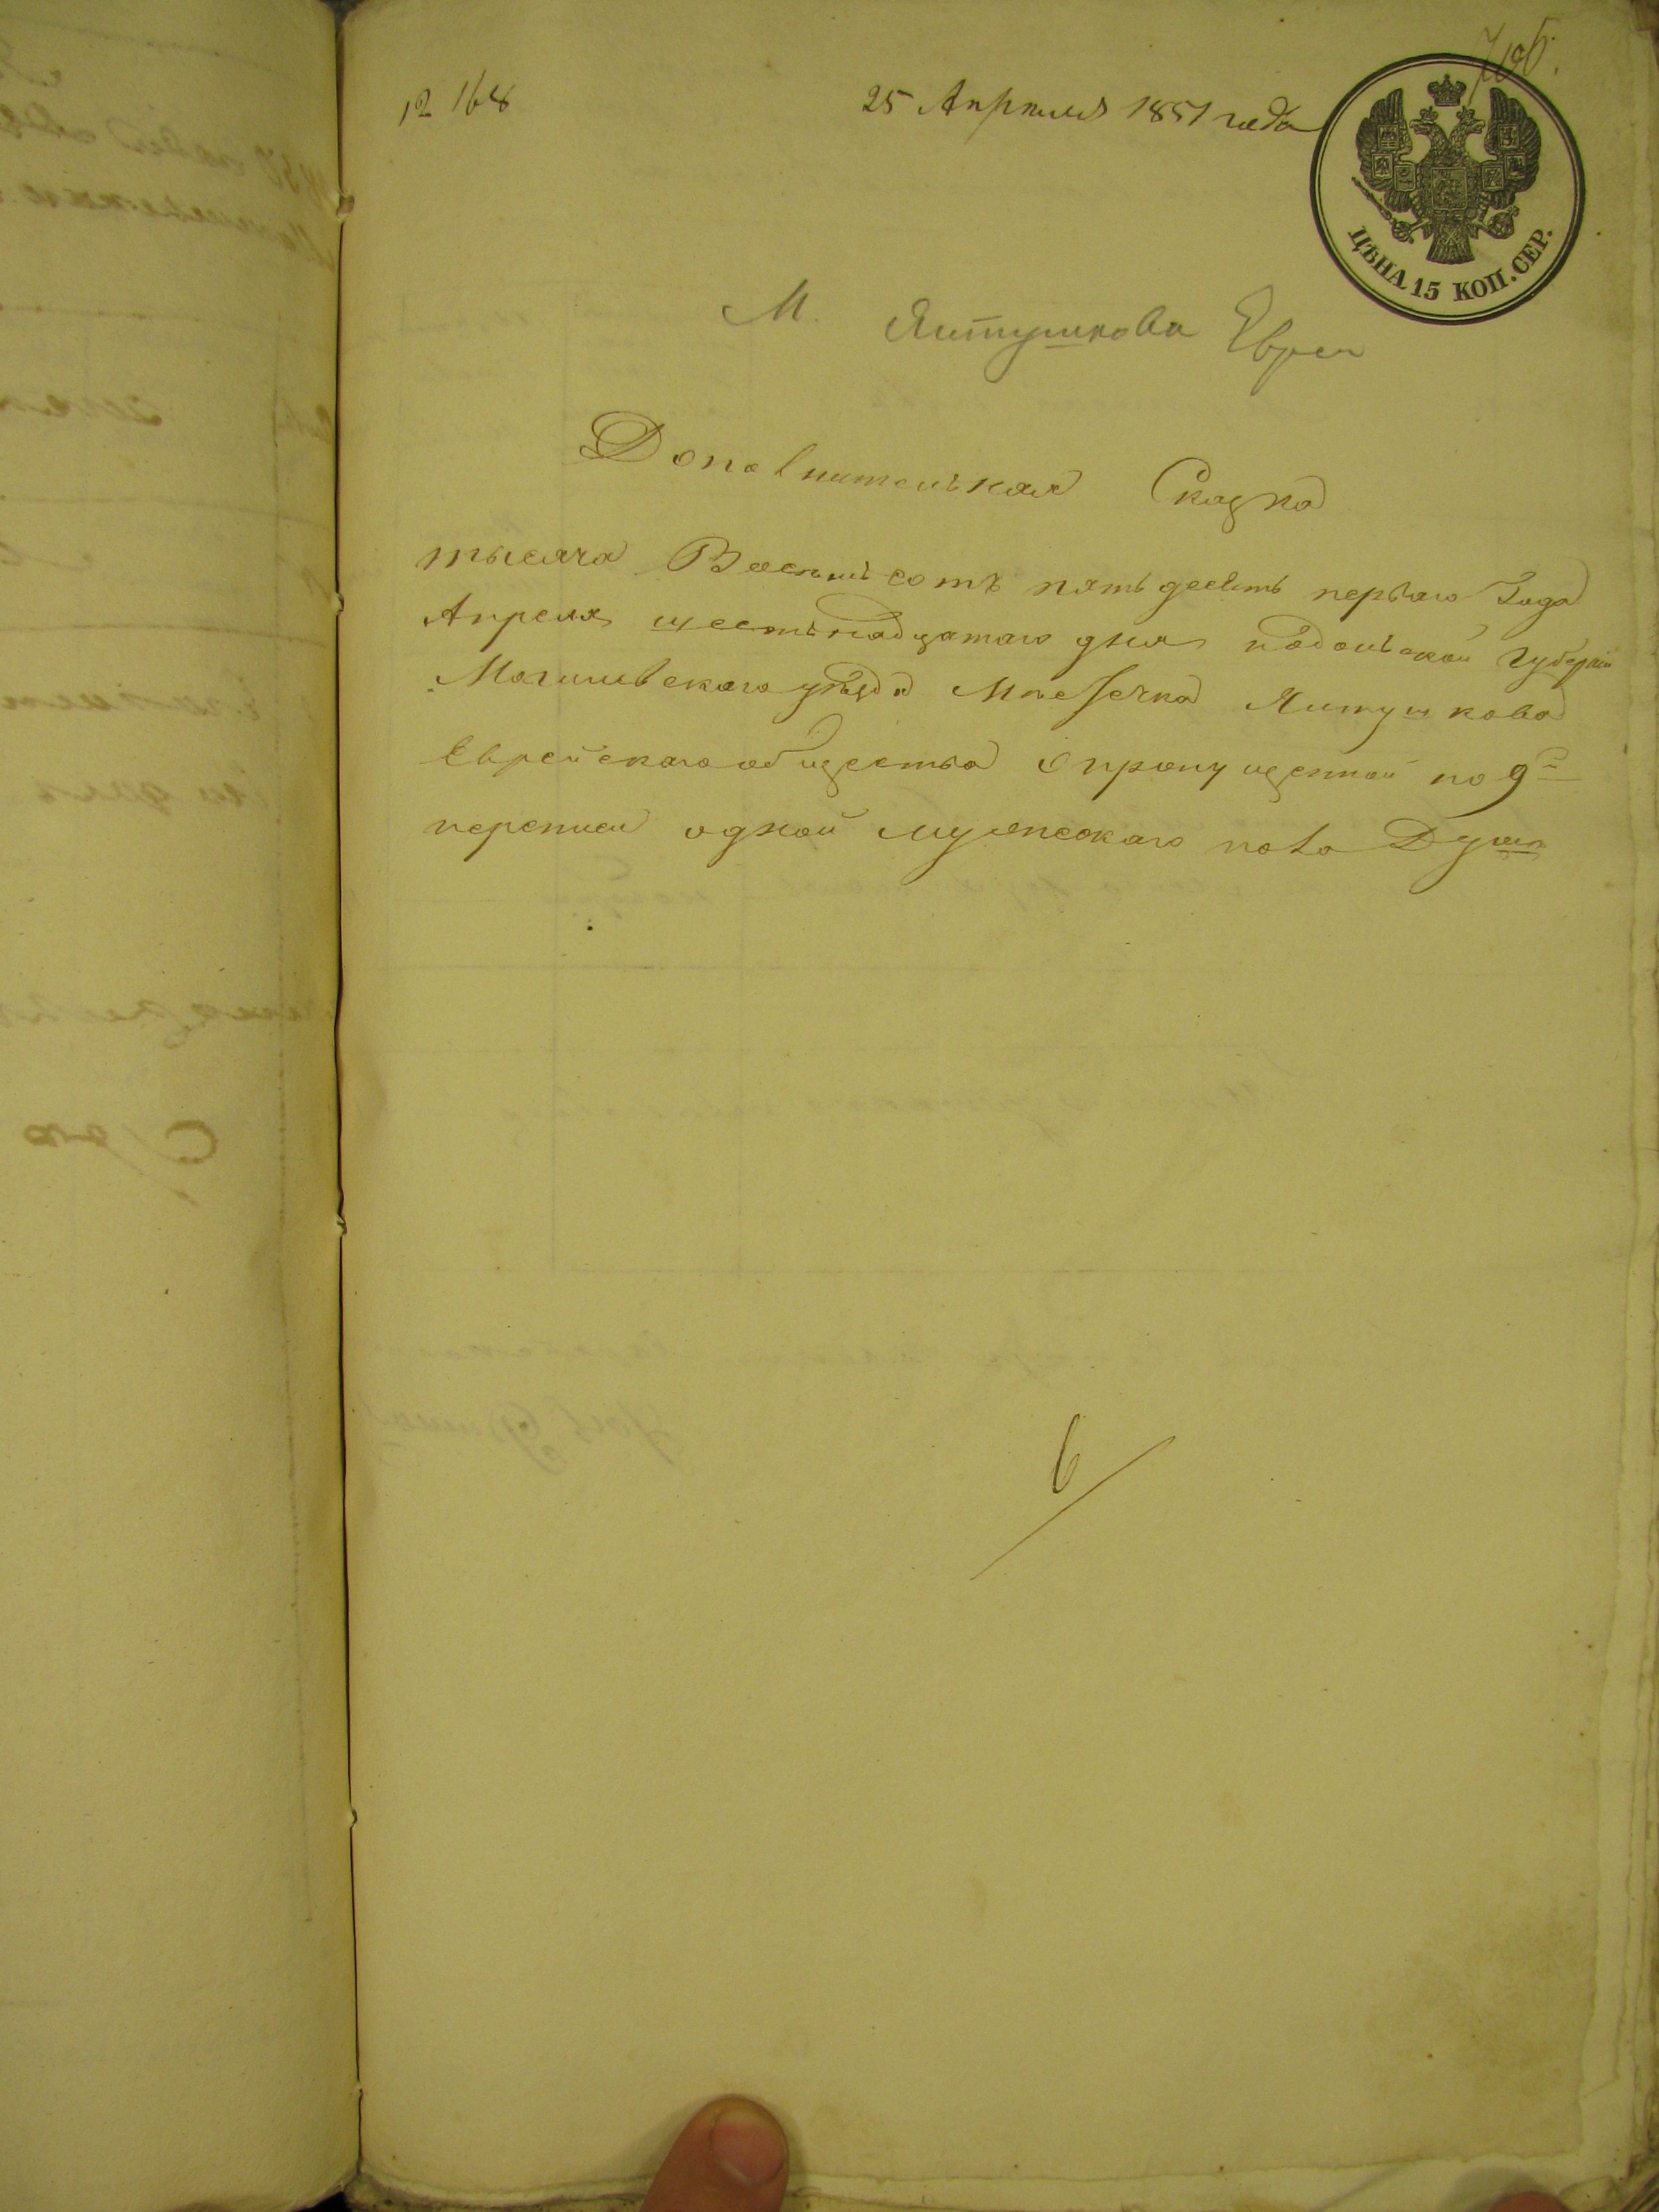 12168
25 Апреля 1851 года
ЦѢНА 15 КОП. СЕР.
М. Ялтушкова Евреи
Дополнительная Сказка
тысяча Восемьсотъ пятьдесятъ перваго Года
Апреля шестьнадцатаго дня подольской Губерніи
Могилевскаго уѣзда Мѣстечка Ялтушкова
Еврейскаго общества о пропущенной по 9й
переписи одной мужескаго пола Душѣ
6